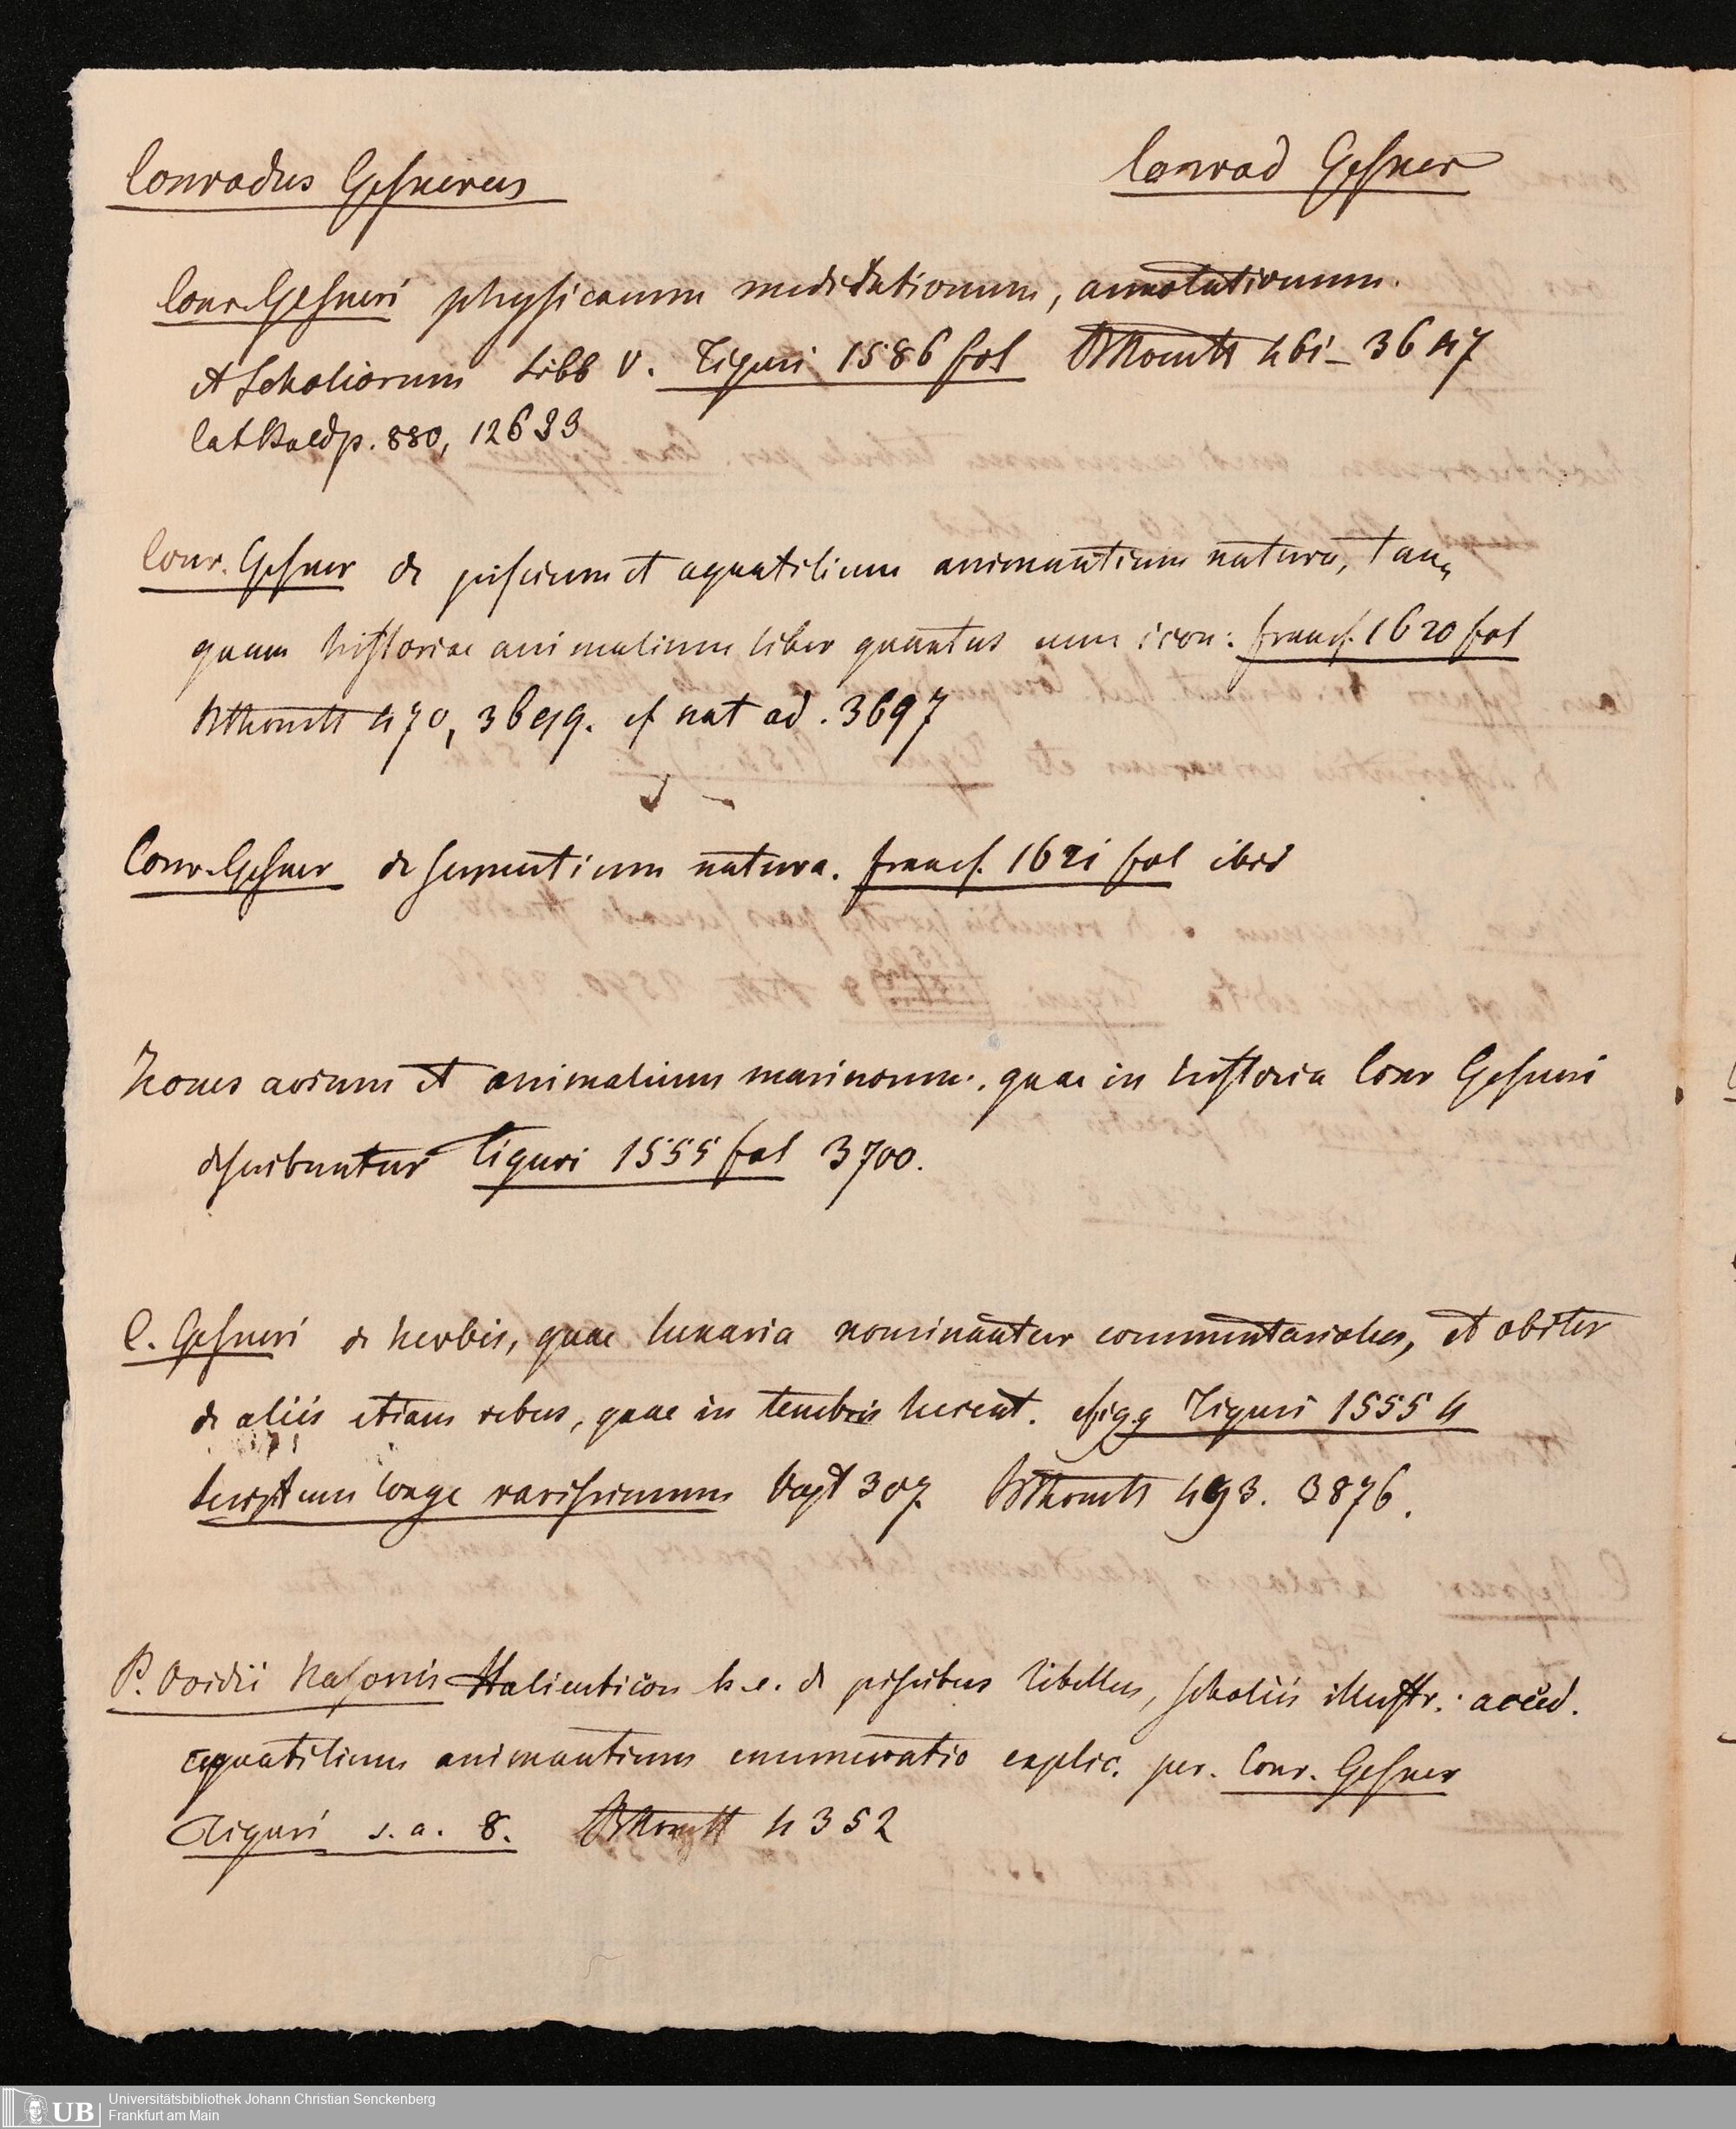 Conradus Gesnerus
Conrad Gesner
Conr. Gesneri physicarum meditationum, annotationum.
et Scholiorum Libb V. Tiguri 1586 fol 461 – 3647
p. 880, 12633
Conr. Gesner de piscium et aquatilium animantium natura, tan„
quam historiae animalium liber quartus cum icon: Francf. 1620 fol
470, 3699. cf nat ad. 3697
Conr. Gesner de serpentium natura. Francf. 1621 fol ibid
Icones avium et animalium marinorum, quae in historia Conr Gesneri
describuntur Tiguri 1555 fol 3700.
C. Gesneri de herbis, quae lunaria nominantur commentariolus, et obiter
de aliis etiam rebus, quae in tenebris lucent. c figg Tiguri 1555 4
scriptum longe rarissimum Vogt 307. 493. 3876.
P. Ovidii Nasonis Halieuticon h. e. de piscibus libellus, scholiis illustr.: acced.
aquatilium animantium enumeratio explic. per. Conr. Gesner
Tiguri s. a. 8. 4352
UB
Universitätsbibliothek Johann Christian Senckenberg
Frankfurt am Main